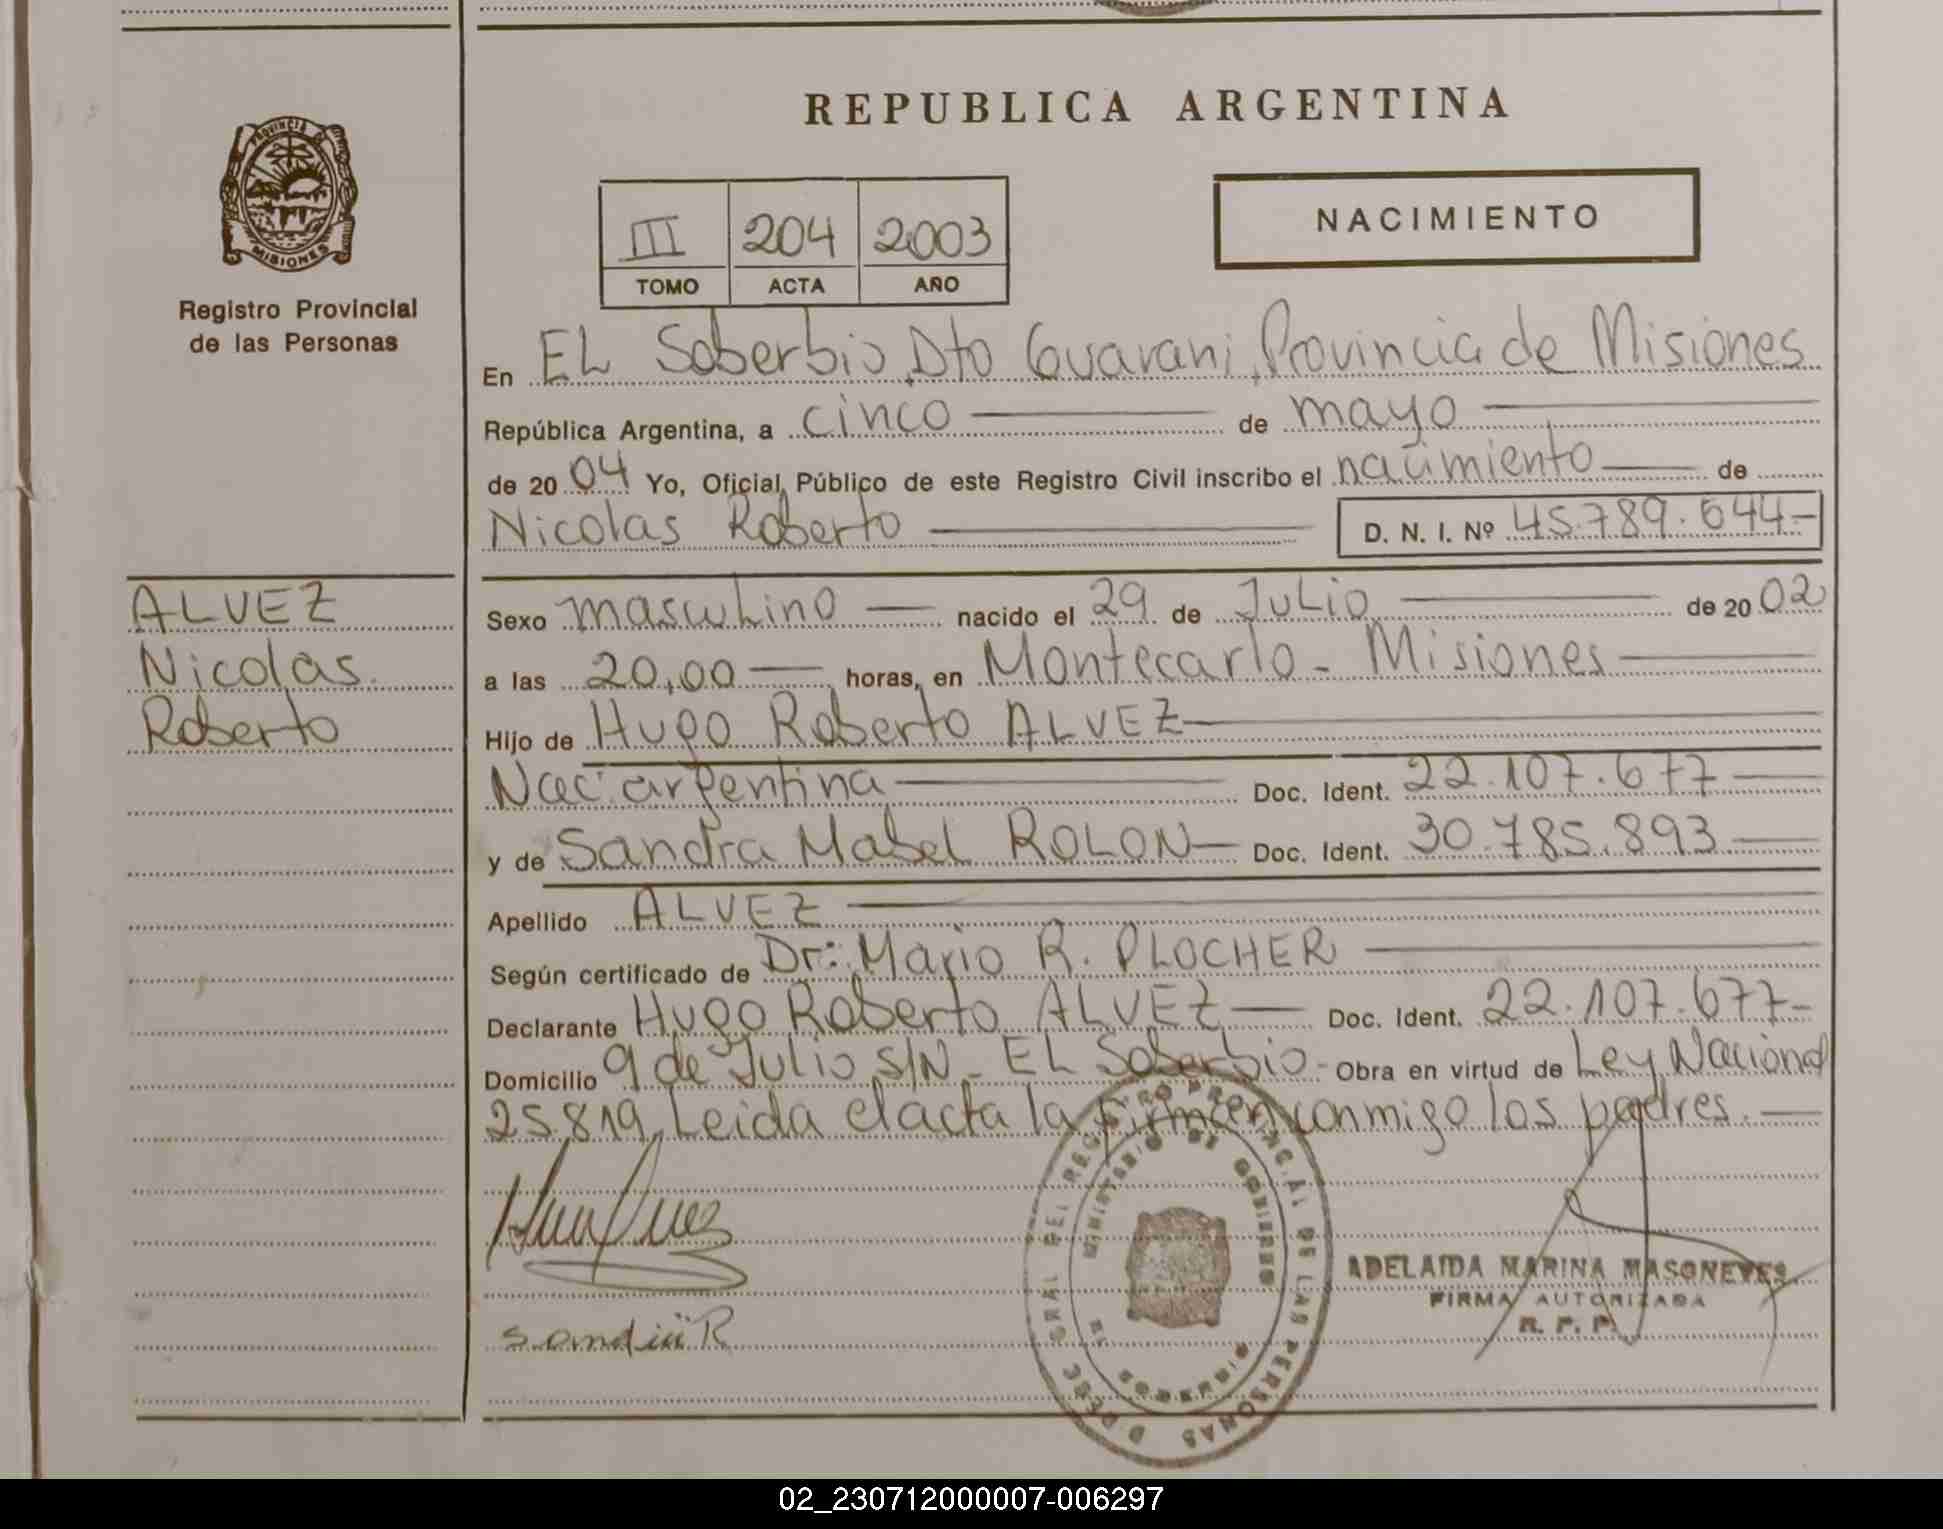 REPUBLICA ARGENTINA
PROVINCIA DE
MISIONES
Registro Provincial
de las Personas
NACIMIENTO
III 204 2003
TOMO ACTA AÑO
En EL Soberbio, Dto Guarani, Provincia de Misiones
República Argentina, a cinco de mayo
de 2004 Yo, Oficial Público de este Registro Civil inscribo el nacimiento de
Nicolas Roberto D. N. I. Nº 45.789.644-
ALVEZ
Nicolas
Roberto
Sexo masculino nacido el 29 de Julio de 2002
a las 20,00 horas, en Montecarlo - Misiones
Hijo de Hugo Roberto ALVEZ
Nac: argentina Doc. Ident. 22.107.677
y de Sandra Mabel ROLON Doc. Ident. 30.785.893
Apellido ALVEZ
Según certificado de Dr: Mario R. PLOCHER
Declarante Hugo Roberto ALVEZ Doc. Ident. 22.107.677-
Domicilio 9 de Julio S/N - EL Soberbio - Obra en virtud de Ley Nacional
25.819, Leida el acta la firman conmigo los padres.
REGISTRO PROVINCIAL DE LAS PERSONAS
MINISTERIO DE GOBIERNO
EL SOBERBIO
ADELAIDA MARINA MASONEVES
FIRMA AUTORIZADA
R. P. P.
02_230712000007-006297